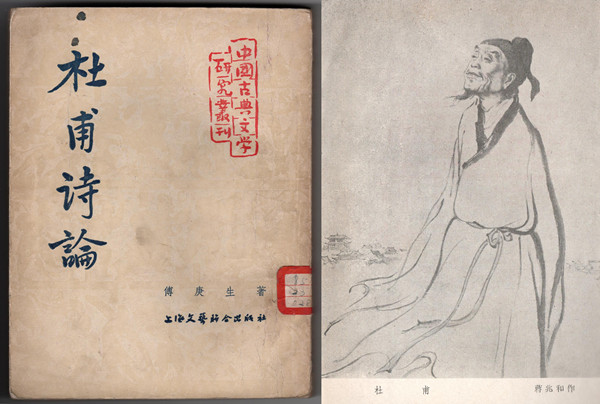 杜甫詩論
中國古典文学
研究叢刊
傅庚生著
上海文藝联合出版社
杜甫
蔣兆和作